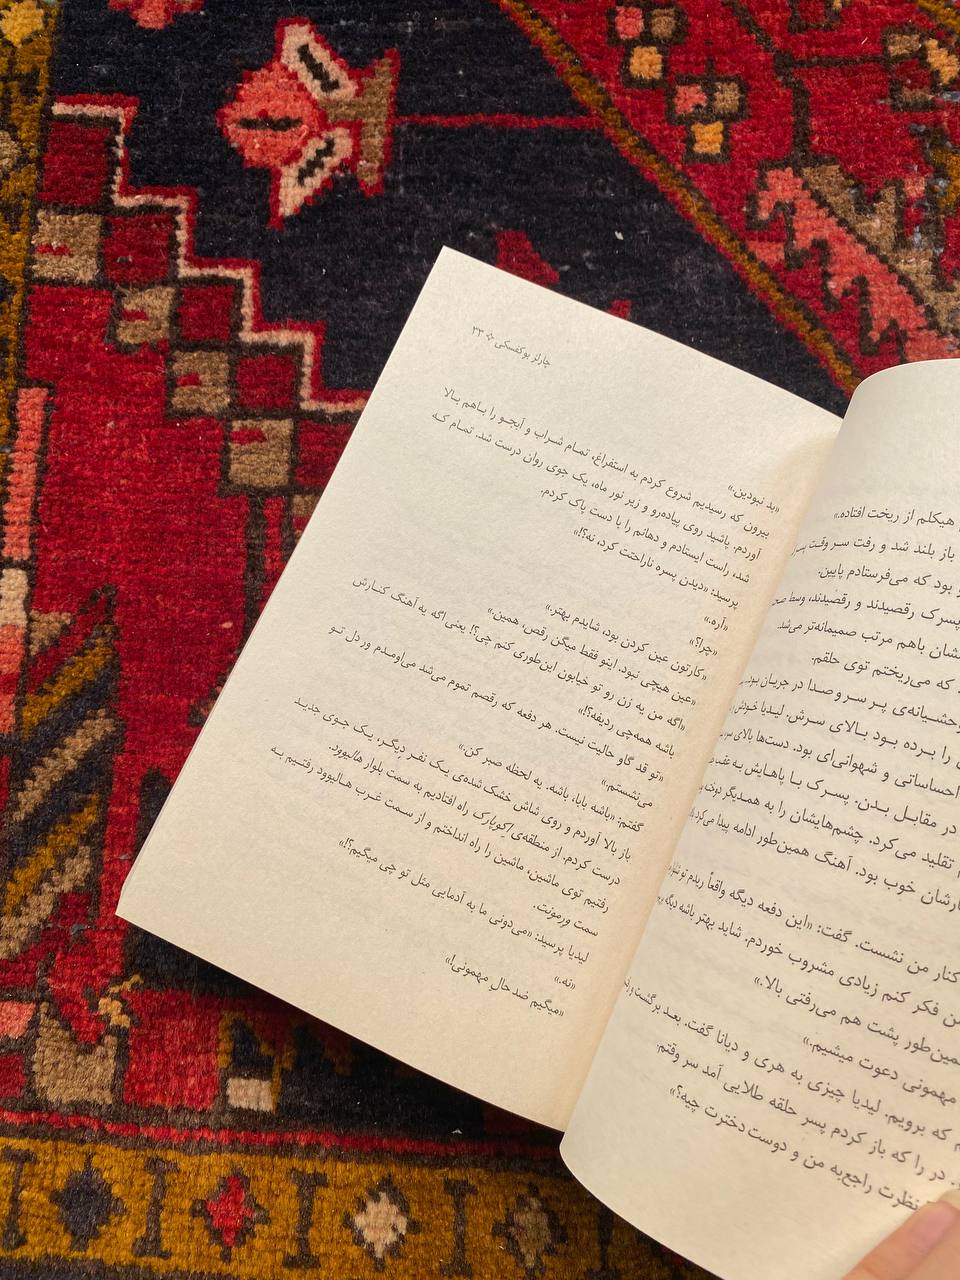 هیکلم از ریخت افتاده.»
باز بلند شد و رفت سر وقت پسر
بود که می‌فرستادم پایین.
پسرک رقصیدند و رقصیدند، وسط
باهم مرتب صمیمانه‌تر می‌شد.
که می‌ریختم توی حلقم.
وحشیانه‌ی پر سر و صدا در جریان
را برده بود بالای سرش. لیدیا
احساساتی و شهوانی‌ای بود. دست‌ها بالای
در مقابل بدن. پسرک با پاهایش به عقب
تقلید می‌کرد. چشم‌هایشان را به همدیگر
خوب بود. آهنگ همین‌طور ادامه پیدا می‌کرد
کنار من نشست. گفت: «این دفعه دیگه واقعاً ریدم تو
فکر کنم زیادی مشروب خوردم. شاید بهتر باشه دیگه
همین‌طور پشت هم می‌رفتی بالا.»
مهمونی دعوت میشیم.»
که برویم. لیدیا چیزی به هری و دیانا گفت. بعد برگشت
در را که باز کردم پسر حلقه طلایی آمد سر وقتم.
نظرت راجع‌به من و دوست دخترت چیه؟»
چارلز بوکفسکی
«بد نبودین.»
بیرون که رسیدیم شروع کردم به استفراغ، تمام شراب و آبجو را باهم بالا
آوردم. پاشید روی پیاده‌رو و زیر نور ماه، یک جوی روان درست شد. تمام که
شد، راست ایستادم و دهانم را با دست پاک کردم.
پرسید: «دیدن پسره ناراحتت کرد، نه؟!»
«آره.»
«چرا؟»
«کارتون عین کردن بود، شایدم بهتر.»
«عین هیچی نبود. اینو فقط میگن رقص، همین.»
«اگه من یه زن رو تو خیابون این‌طوری کنم چی؟! یعنی اگه یه آهنگ کنارش
باشه همه‌چی ردیفه؟!»
«تو قد گاو حالیت نیست. هر دفعه که رقصم تموم می‌شد می‌اومدم ور دل تو
می‌نشستم.»
گفتم: «باشه بابا، باشه. یه لحظه صبر کن.»
باز بالا آوردم و روی شاش خشک شده‌ی یک نفر دیگر، یک جوی جدید
درست کردم. از منطقه‌ی اکوپارک راه افتادیم به سمت بلوار هالیوود.
رفتیم توی ماشین، ماشین را راه انداختم و از سمت غرب هالیوود رفتیم به
سمت ورمونت.
لیدیا پرسید: «می‌دونی ما به آدمایی مثل تو چی میگیم؟!»
«نه.»
«میگیم ضد حال مهمونی!»